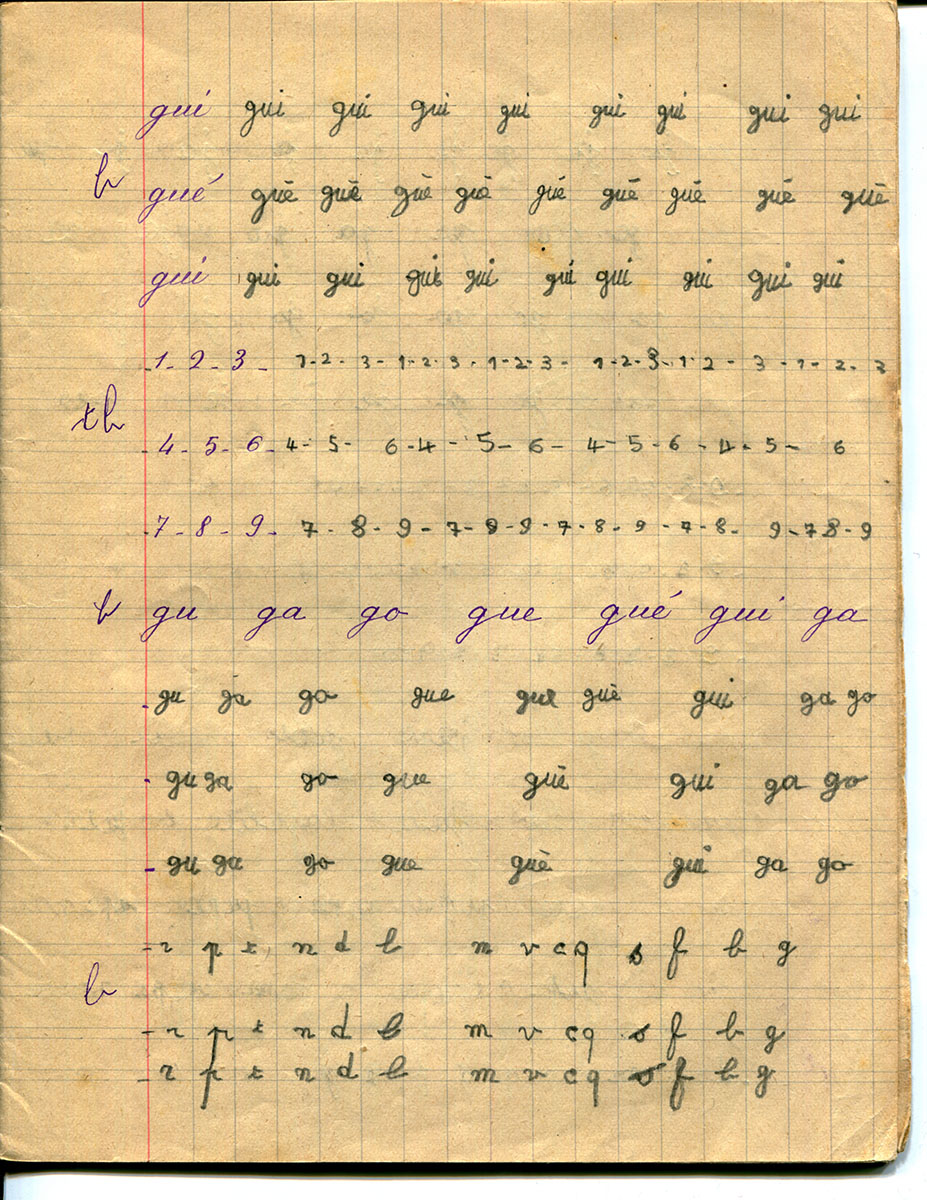 gui gui gui gui gui gui gui gui gui
b gué gué gué gué gué gué gué gué gué gué
gui gui gui gui gui gui gui gui gui gui
1 - 2 - 3 - 1 - 2 - 3 - 1 - 2 - 3 - 1 - 2 - 3 - 1 - 2 - 3 - 1 - 2 - 3 - 1 - 2 - 3
tb 4 - 5 - 6 - 4 - 5 - 6 - 4 - 5 - 6 - 4 - 5 - 6 - 4 - 5 - 6
7 - 8 - 9 - 7 - 8 - 9 - 7 - 8 - 9 - 7 - 8 - 9 - 7 - 8 - 9 - 7 8 - 9
b gu ga go gue gué gui ga
- gu ga go gue gue gué gui ga go
- gu ga go gue gué gui ga go
- gu ga go gue gué gui ga go
- r p t n d l m v c q s f b g
b
- r p t n d l m v c q s f b g
- r p t n d l m v c q s f b g